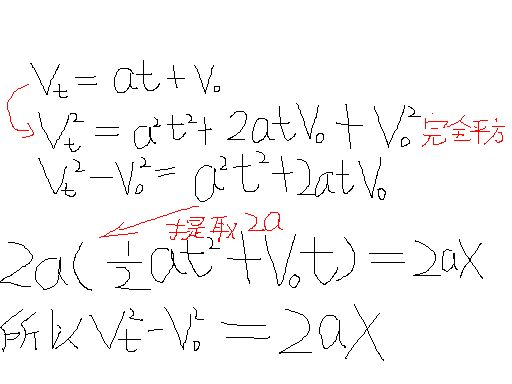 Vₜ = at + V₀
Vₜ² = a²t² + 2atV₀ + V₀² 完全平方
Vₜ² - V₀² = a²t² + 2atV₀
提取 2a
2a(½at² + V₀t) = 2aX
所以 Vₜ² - V₀² = 2aX